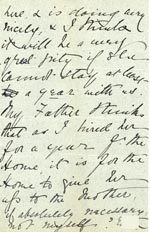 here, & is doing very
nicely, & I think
it will be a very
great pity if she
cannot stay at
a year with us
My Father thinks
that as I hired her
for a year of the
Home it is for the
Home to give her
up to the Mother
if absolutely necessary
not myself